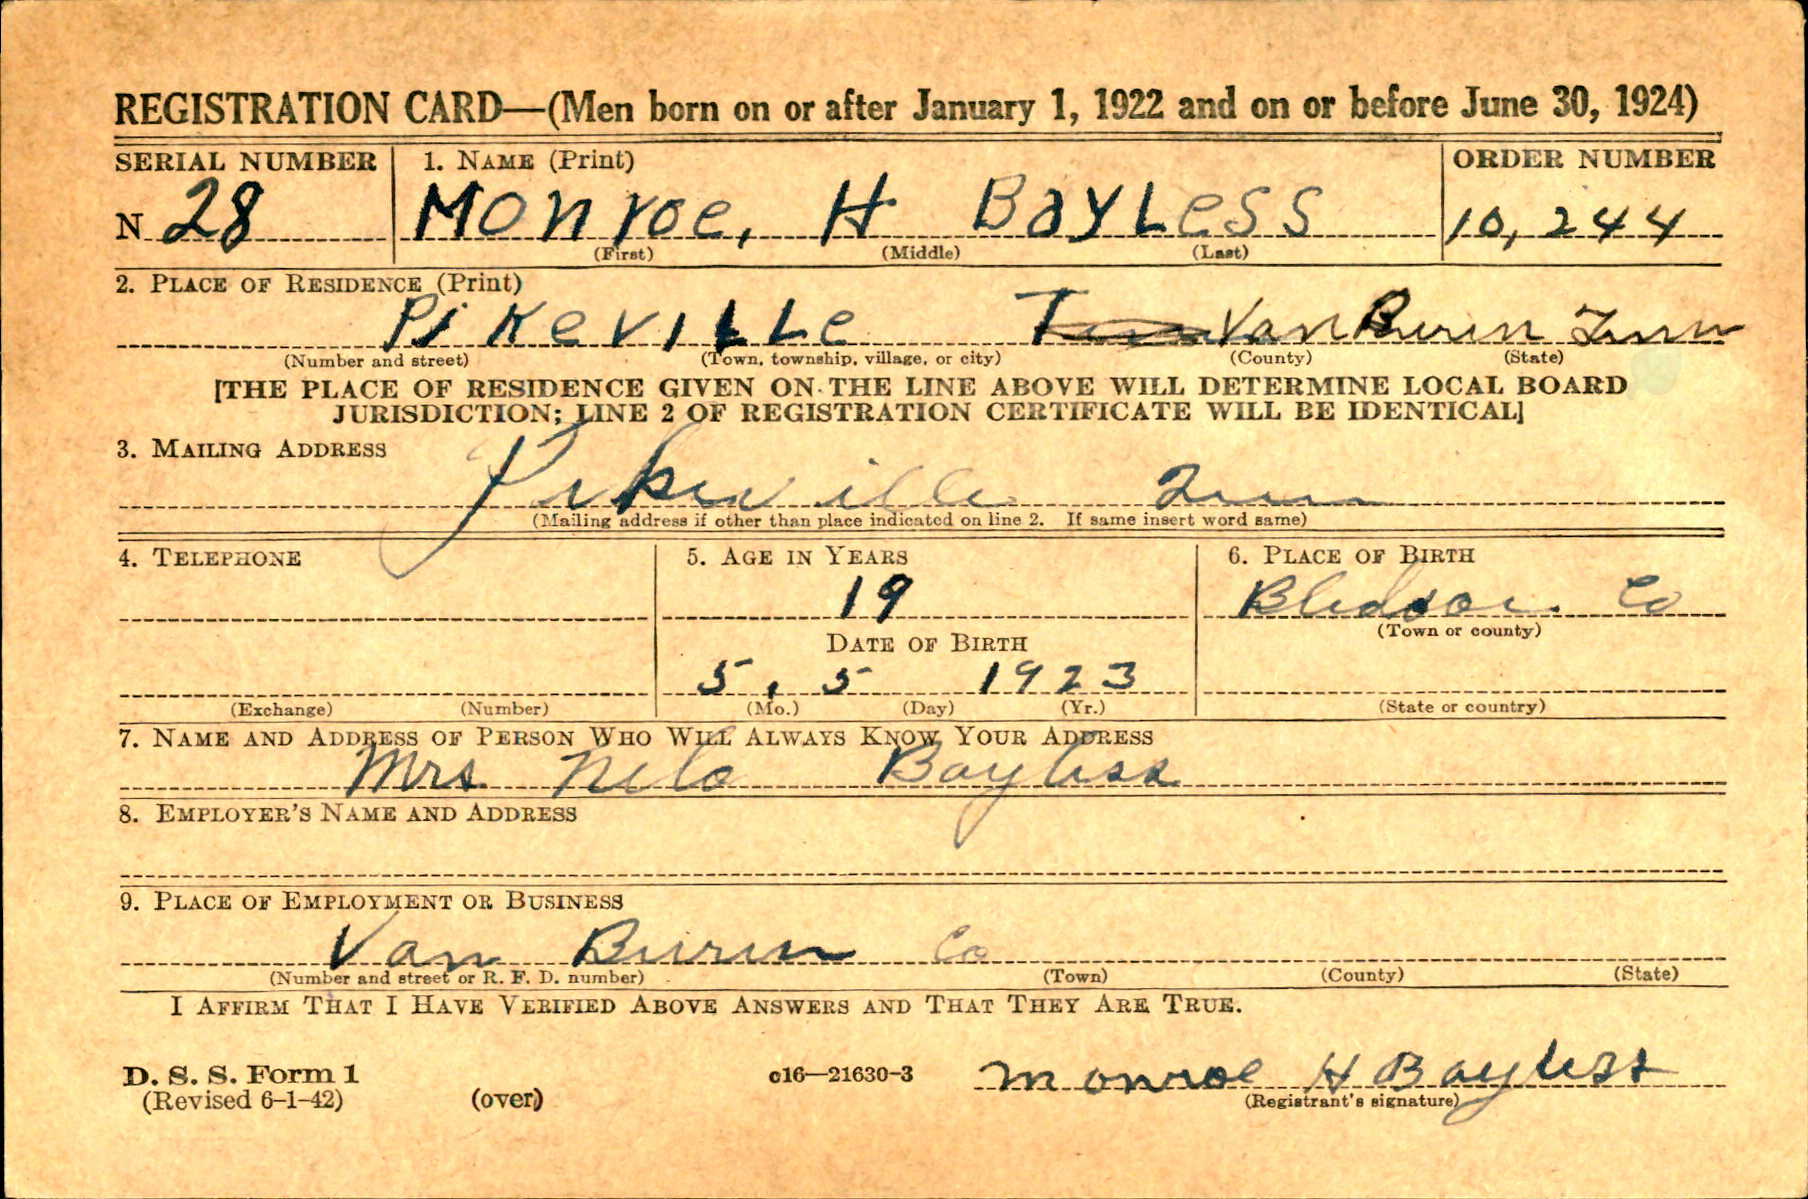 REGISTRATION CARD—(Men born on or after January 1, 1922 and on or before June 30, 1924)
SERIAL NUMBER 1. NAME (Print) ORDER NUMBER
N 28 Monroe, H Bayless 10,244
(First) (Middle) (Last)
2. PLACE OF RESIDENCE (Print)
Pikeville Van Buren Tenn
(Number and street) (Town, township, village, or city) (County) (State)
[THE PLACE OF RESIDENCE GIVEN ON THE LINE ABOVE WILL DETERMINE LOCAL BOARD
JURISDICTION; LINE 2 OF REGISTRATION CERTIFICATE WILL BE IDENTICAL]
3. MAILING ADDRESS
Pikeville Tenn
(Mailing address if other than place indicated on line 2. If same insert word same)
4. TELEPHONE 5. AGE IN YEARS 6. PLACE OF BIRTH
19 Bledsoe. Co
(Town or county)
DATE OF BIRTH
5, 5 1923
(Exchange) (Number) (Mo.) (Day) (Yr.) (State or country)
7. NAME AND ADDRESS OF PERSON WHO WILL ALWAYS KNOW YOUR ADDRESS
Mrs Nelo Bayless
8. EMPLOYER'S NAME AND ADDRESS
9. PLACE OF EMPLOYMENT OR BUSINESS
Van Buren Co
(Number and street or R. F. D. number) (Town) (County) (State)
I AFFIRM THAT I HAVE VERIFIED ABOVE ANSWERS AND THAT THEY ARE TRUE.
D. S. S. Form 1 c16—21630-3 Monroe H Bayless
(Revised 6-1-42) (over) (Registrant's signature)